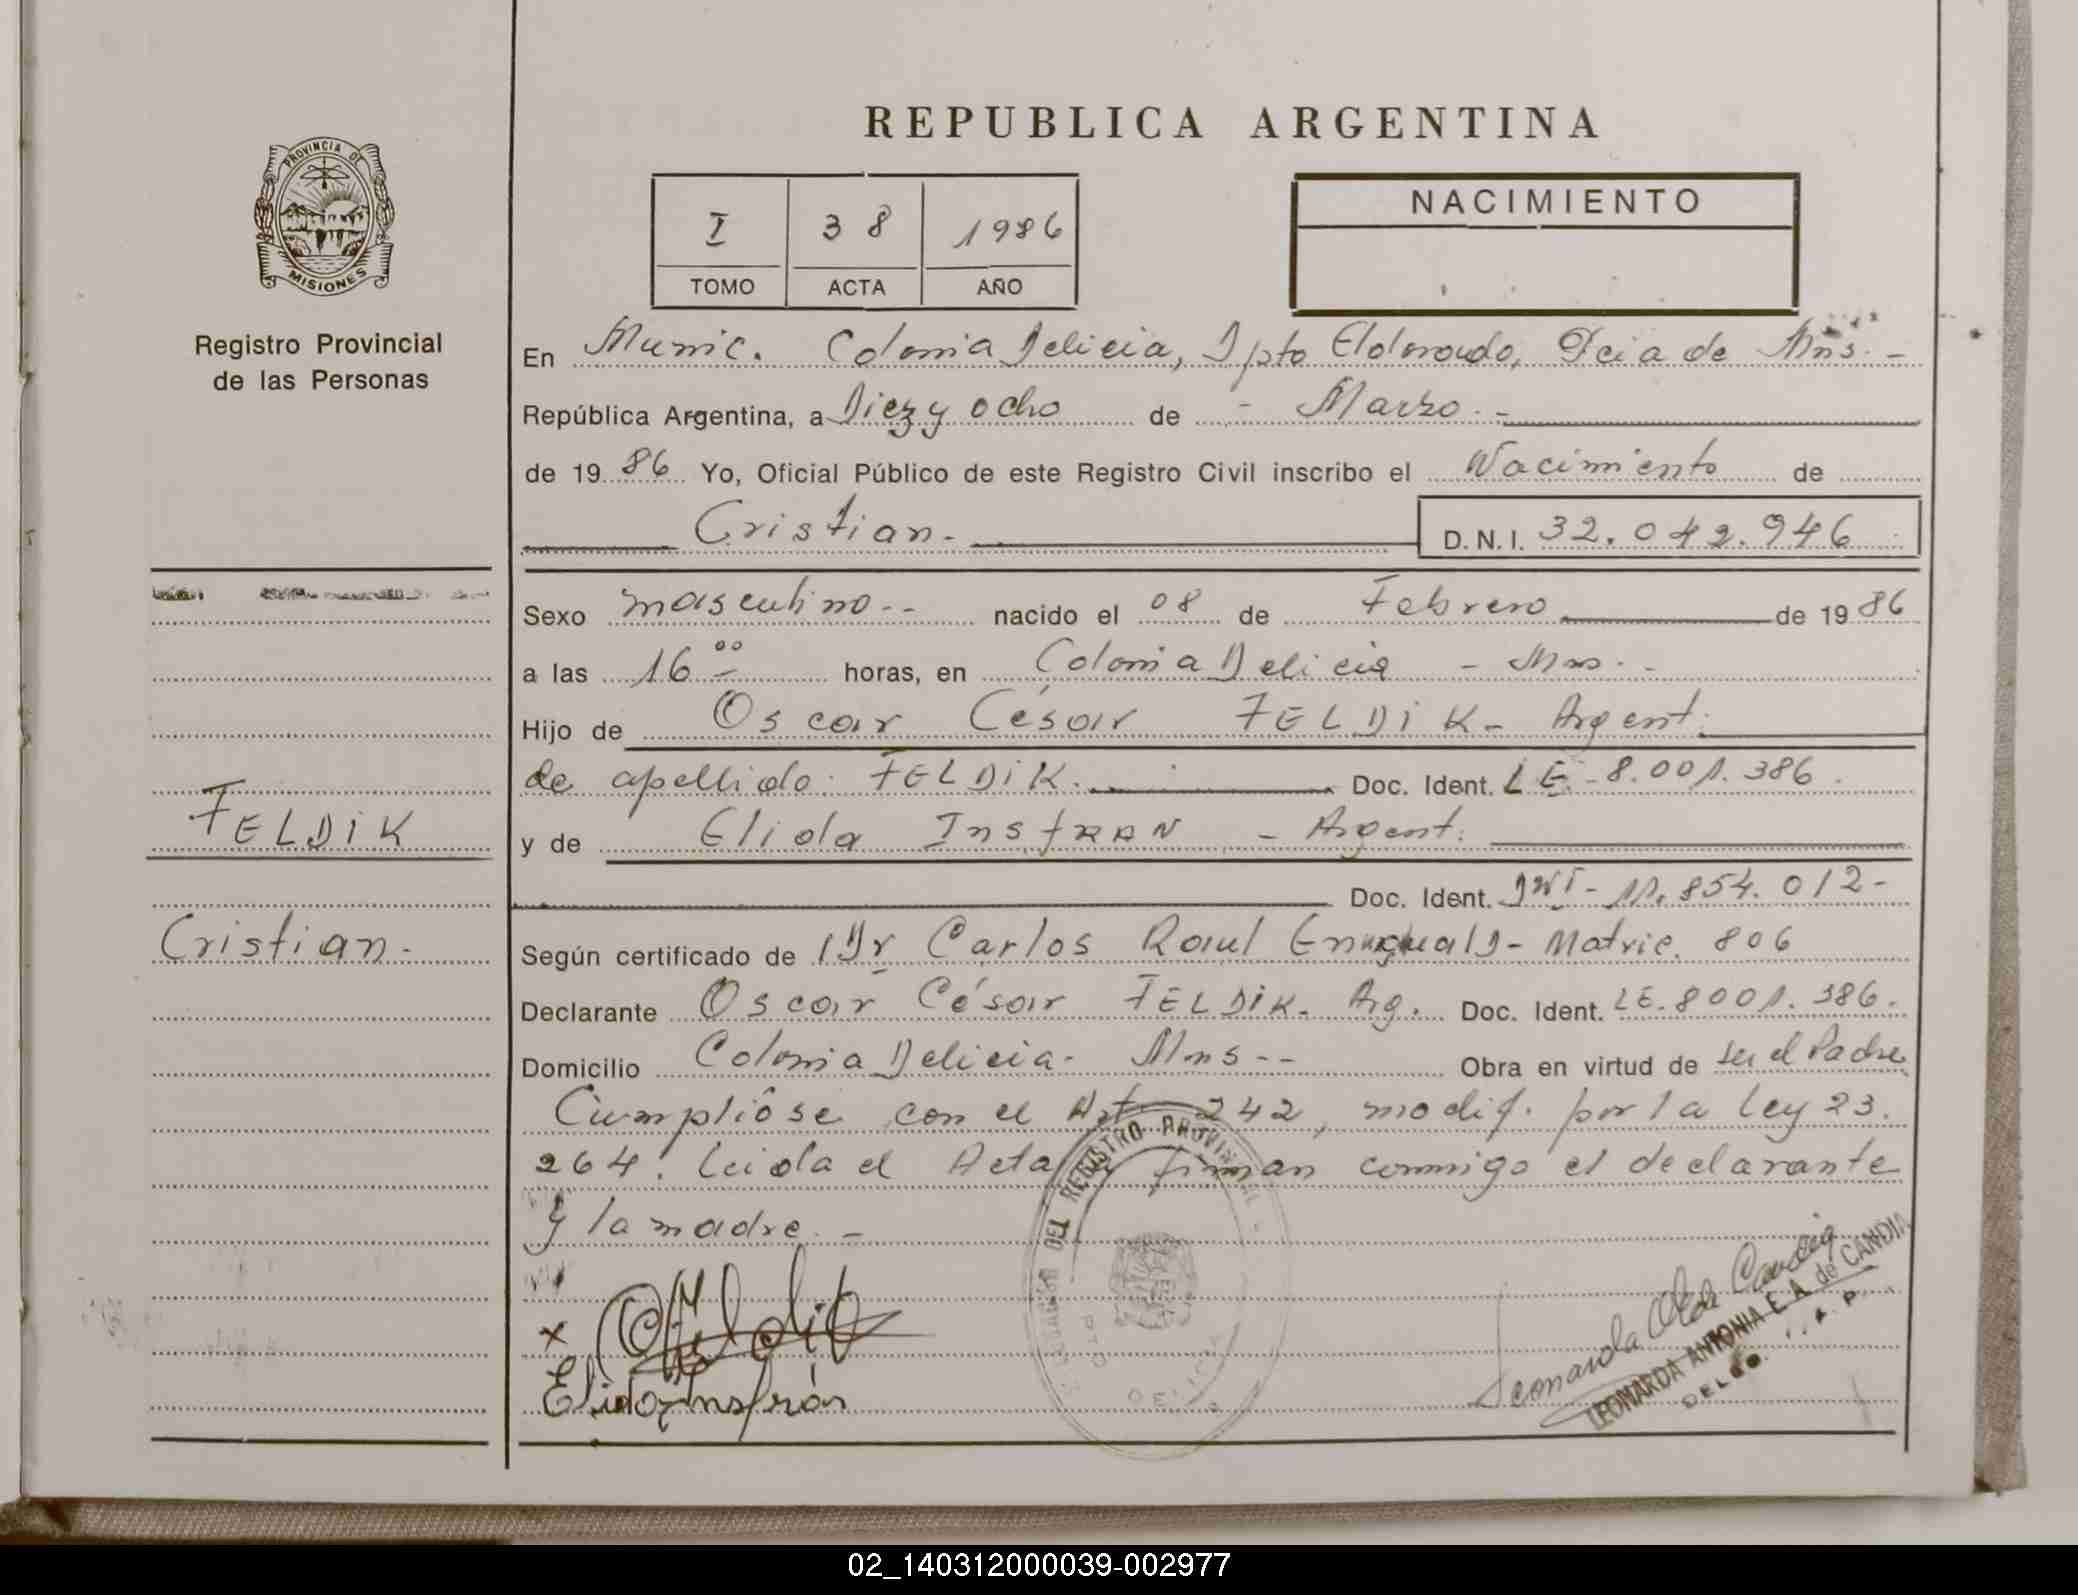 REPUBLICA ARGENTINA
PROVINCIA DE
MISIONES
Registro Provincial
de las Personas
I 38 1986
TOMO ACTA AÑO
NACIMIENTO
En Munic. Colonia Delicia, Dpto Eldorado, Pcia de Mns.-
República Argentina, a Diez y ocho de - Marzo.-
de 1986 Yo, Oficial Público de este Registro Civil inscribo el Nacimiento de
Cristian.- D.N.I. 32.042.946
Sexo masculino-- nacido el 08 de Febrero de 1986
a las 16 00 horas, en Colonia Delicia - Mns.-
Hijo de Oscar César FELDiK- Argent.
de apellido: FELDiK. Doc. Ident. LE-8.001.386.
FELDiK
y de Elida InsfRAN - Argent.
Doc. Ident. DNI- 11.854.012-
Cristian.-
Según certificado de Dr Carlos Raul - Matric. 806
Declarante Oscar César FELDiK. Arg. Doc. Ident. LE.8001.386.
Domicilio Colonia Delicia- Mns-- Obra en virtud de ser el Padre
Cumplióse con el Art. 242, modif. por la Ley 23.
264. Leida el Acta firman conmigo el declarante
y la madre.-
DEL REGISTRO PROVINCIAL
x
Elida Insfrán
LEONARDA ANTONIA E. A. de CANDIA
02_140312000039-002977